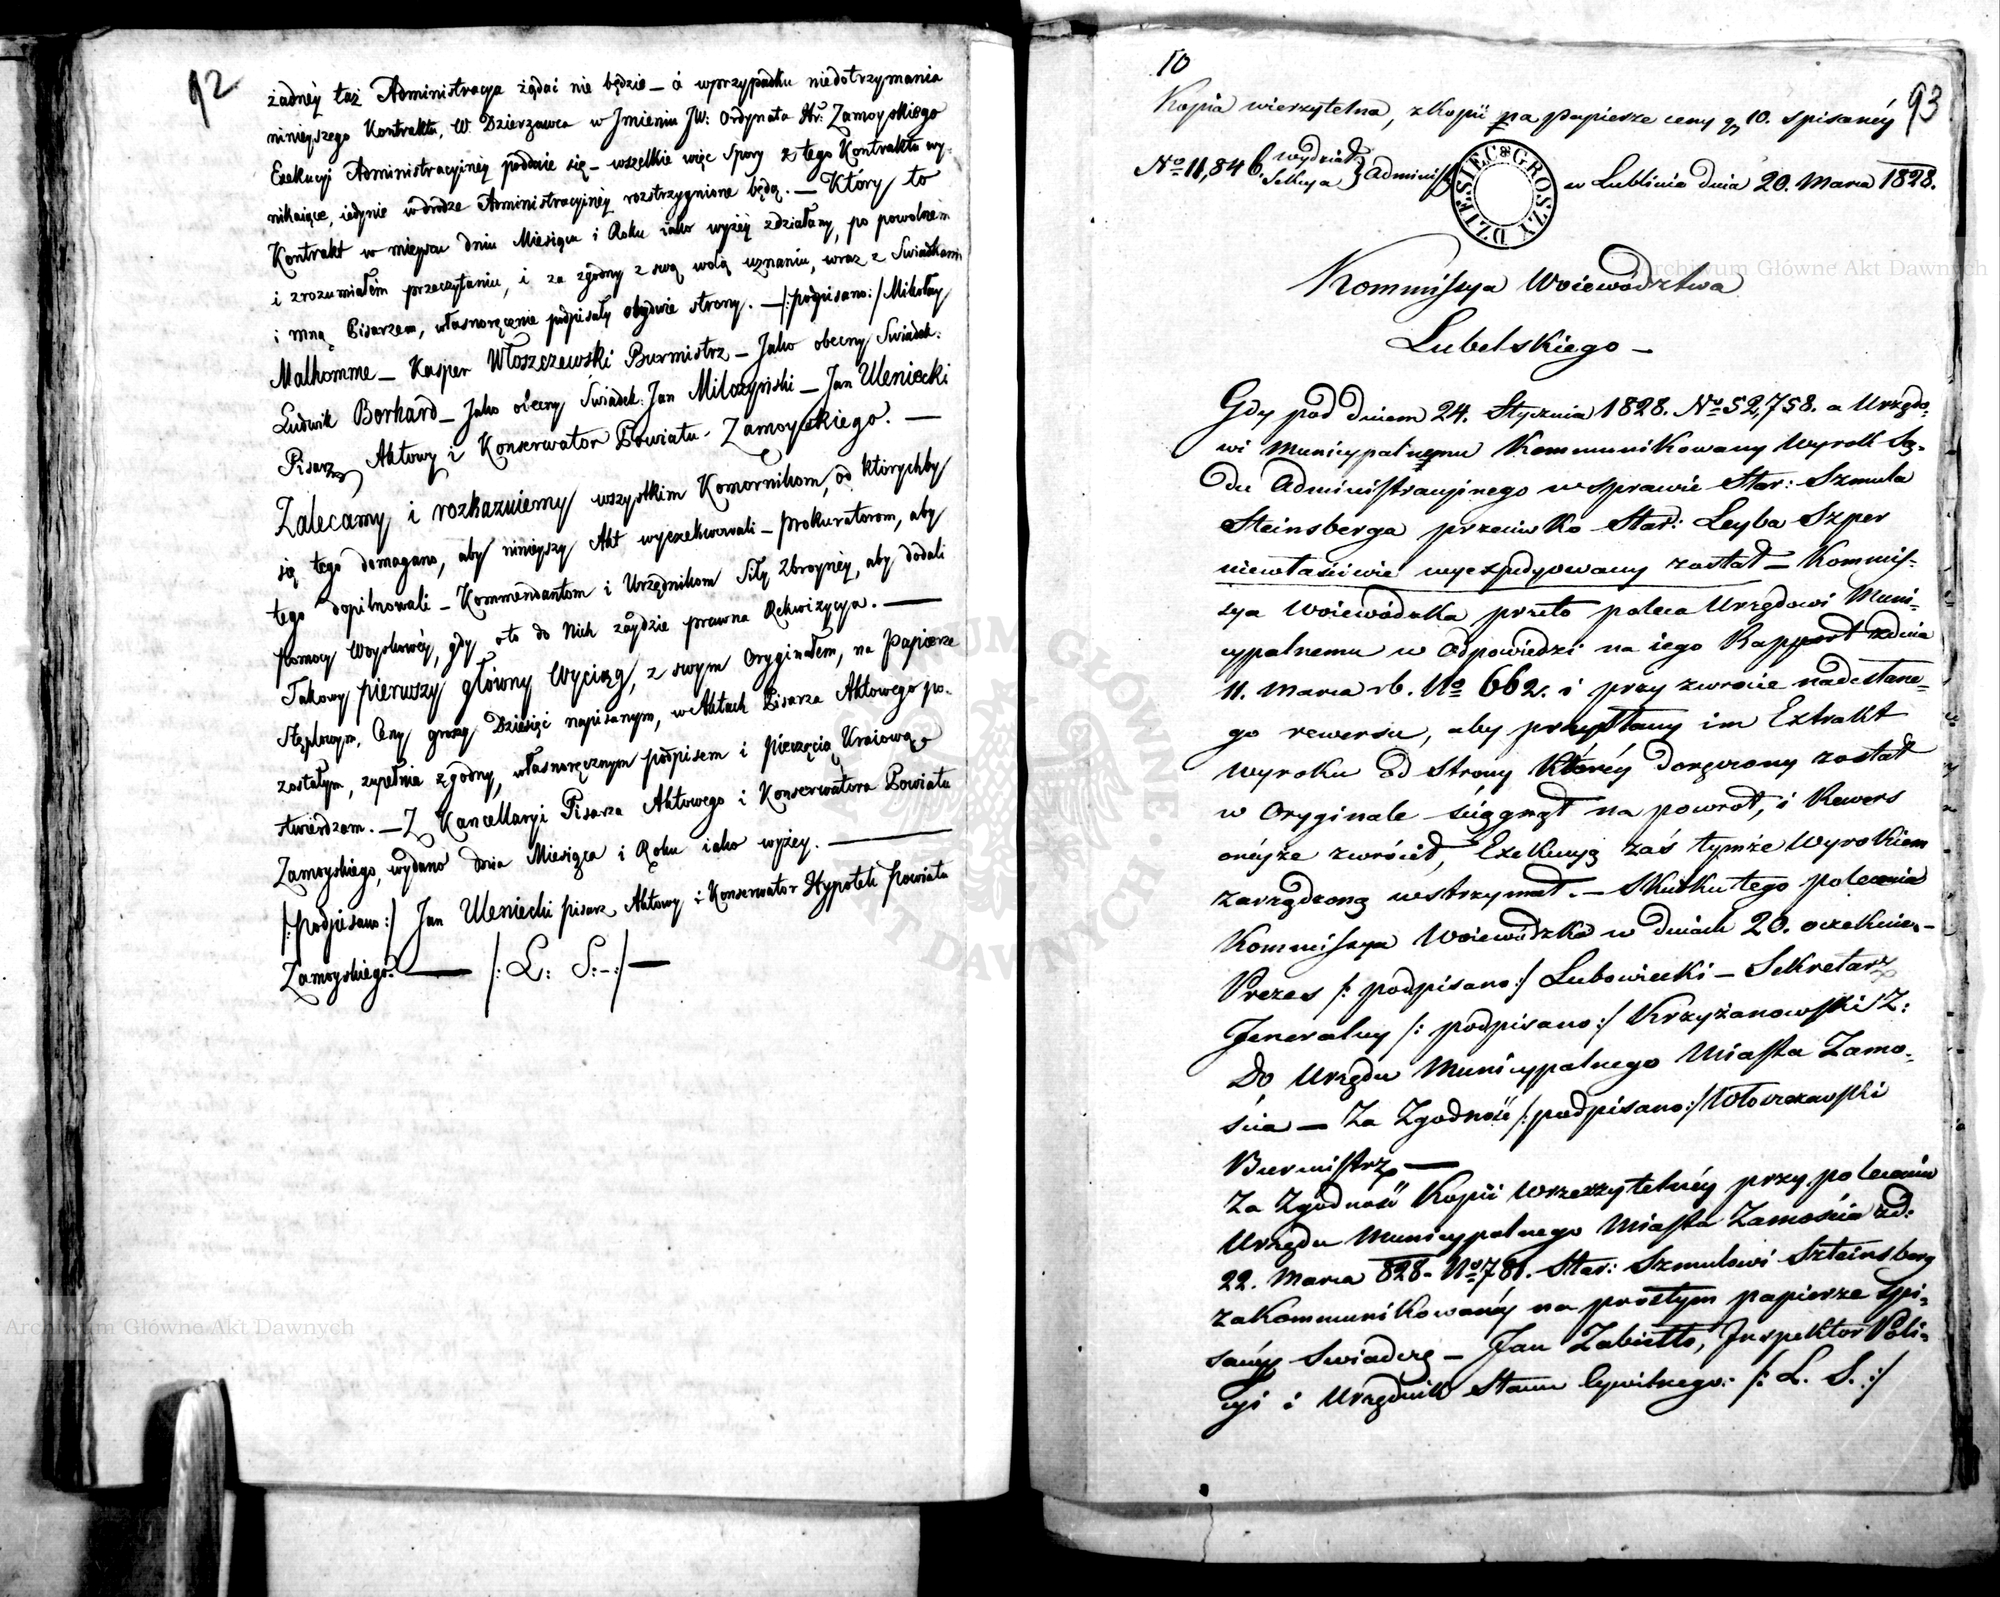 92
żadnéy taż Administracya żądać nie będzie – á w przypadku niedotrzymania
ninieyszego Kontraktu, W. Dzierzawca w Jmieniu JW: Ordynata Hr: Zamoyskiego
Exekucyi Administracyinéy poddaie się – wszelkie więc spory z tego Kontraktu wy-
nikaiące, iedynie w drodze Administracyinéy rozstrzygnione będą. — Który to
Kontrakt w mieyscu dniu Miesiącu i Roku iako wyżéy zdziałany, po powolném
i zrozumiałém przeczytaniu, i za zgodny z swą wolą uznaniu, wraz z Swiadkami
i mną Pisarzem, własnoręcznie podpisały obydwie strony. — /:podpisano:/ Mikołay
Malhomme — Kasper Włoszczewski Burmistrz — Jako obecny Swiadek:
Ludwik Borhard — Jako obecny Swiadek: Jan Milczyński — Jan Uleniecki
Pisarz Aktowy i Konserwator Powiatu Zamoyskiego. —
Zalecamy i rozkazuiemy wszystkim Komornikom, od którychby
się tego domagano, aby ninieyszy Akt wyexekwowali — Prokuratorom, aby
tego dopilnowali — Kommendantom i Urzędnikom Siły Zbroynéy, aby dodali
pomocy Woyskowéy, gdy oto do Nich zaydzie prawna Rekwizycya. —
Takowy pierwszy główny Wyciąg, z swym Oryginałem, na Papierze
Stęplowym, Ceny groszy Dziesięć napisanym, w Aktach Pisarza Aktowego po-
zostałym, zupełnie zgodny, własnoręcznym podpisem i pieczęcią Kraiową
stwierdzam. — Z Kancellaryi Pisarza Aktowego i Konserwatora Powiatu
Zamoyskiego, wydano dnia Miesiąca i Roku iako wyżey. —
/:podpisano:/ Jan Uleniecki pisarz Aktowy i Konserwator Hypotek Powiatu
Zamoyskiego. — /: L: S: –:/ —
10
93
Kopia wierzytelna, z kopii na papierze ceny gr 10. spisanéy
No 11,846. Wydział Sekcya } Administ
DZIESIEC GROSZY
w Lublinie dnia 20. Marca 1828.
Kommissya Woiewództwa
Lubelskiego —
Gdy pod dniem 24. Stycznia 1828. No 52,758. a Urzędo-
wi Municypalnemu Kommunikowany Wyrok Są-
du Administracyinego w sprawie Star: Szmula
Steinsberga przeciwko Star: Leyba Szper
niewłaściwie wyexpedyowany został — Kommis-
sya Woiewódzka przeto poleca Urzędowi Muni-
cypalnemu w odpowiedzi na iego Rapport z dnia
11. Marca rb. No 662. i przy zwrocie nadesłane-
go rewersu, aby przysłany im Extrakt
Wyroku od Strony któréy doręczony został
w Oryginale ściągnął na powrót, i Rewers
onéyże zwrócił, Exekucyą zaś tymże Wyrokiem
zarządzoną wstrzymał. — Skutku tego polecenia
Kommissya Woiewódzka w dniach 20. oczekuie. —
Prezes /: podpisano:/ Lubowiecki — Sekretarz
Jeneralny /: podpisano:/ Krzyżanowski Z:
Do Urzędu Municypalnego Miasta Zamo-
ścia — Za Zgodność /:podpisano:/ Włoszczewski
Burmistrz —
Za Zgodność Kopii Wierzytelnéy przy poleceniu
Urzędu Municypalnego Miasta Zamościa z d:
22. Marca 828. No 781. Star: Szmulowi Szteinsberg
zakommunikowanéy na prostym papierze spi-
sanéy Swiadczę — Jan Zabiełło, Inspektor Poli-
cyi i Urzędnik Stanu Cywilnego. /: L. S. :/
Archiwum Główne Akt Dawnych
Archiwum Główne Akt Dawnych
ARCHIWUM GŁÓWNE · AKT DAWNYCH ·